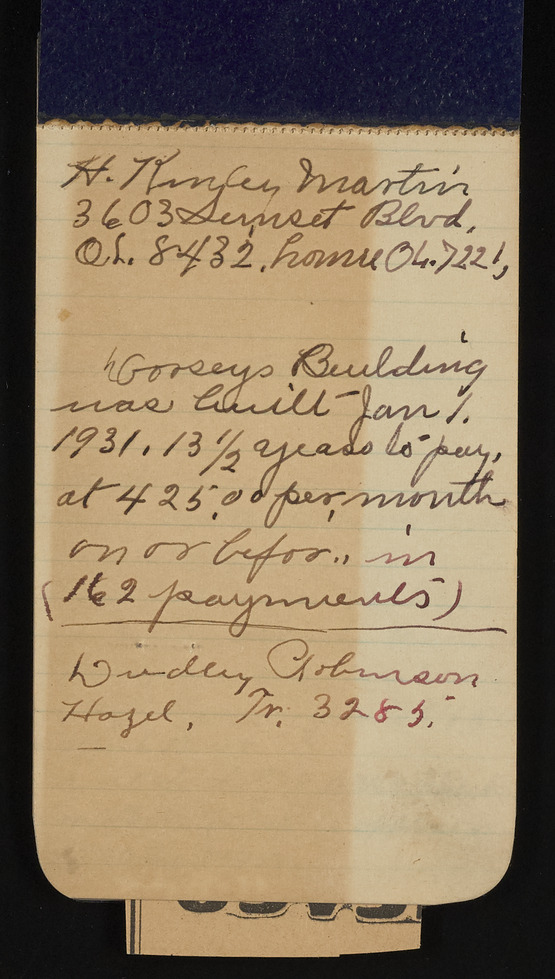 H. Kinley Martin
3603 Sunset Blvd,
OL. 8432, home OL. 7221,
Woorseys Building
was built Jan 1.
1931. 13 1/2 years to pay,
at 425.00 per, month
on or befor., in
(162 payments)
Dudley Robinson
Hazel, Tr. 3285.